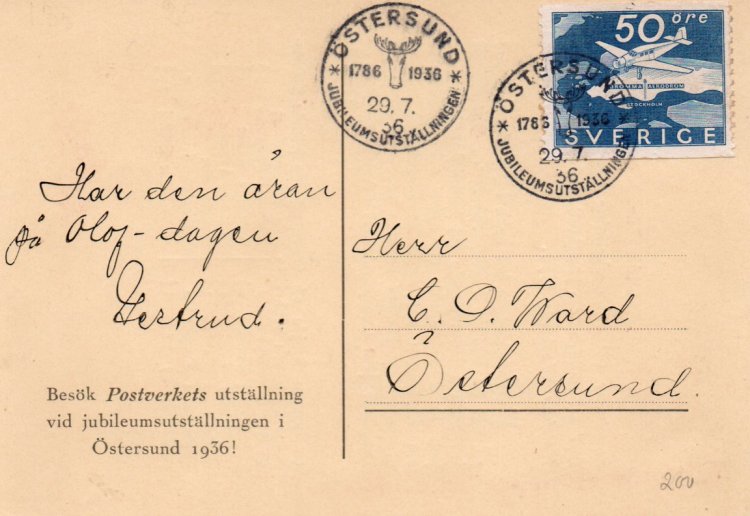 ÖSTERSUND
1786 1936
29.7.
36
* JUBILEUMSUTSTÄLLNINGEN *
50 öre
BROMMA AERODROM
STOCKHOLM
SVERIGE
ÖSTERSUND
1786 1936
29.7.
36
* JUBILEUMSUTSTÄLLNINGEN *
Har den äran
på Olof-dagen
Gertrud.
Herr
C. O. Ward
Östersund.
Besök Postverkets utställning
vid jubileumsutställningen i
Östersund 1936!
200